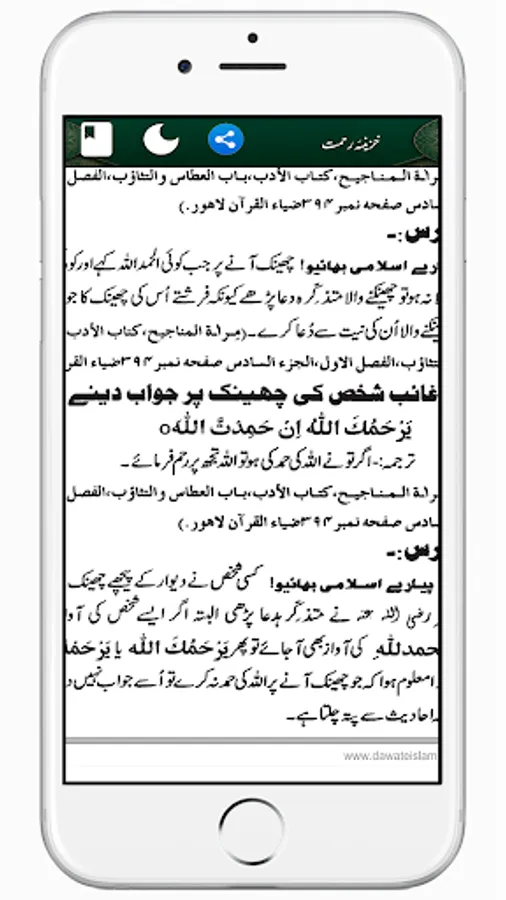 خزینۂ رحمت
مراۃ المناجیح،کتاب الأدب،باب العطاس والتثاؤب،الفصل
سادس صفحه نمبر ۳۹۴ضیاء القرآن لاهور.)
رس:-
اسلامی بھائیو! چھینک آنے پر جب کوئی الحمد اللہ کہے اور کو
نہ ہو تو چھینکنے والا متذکرہ دعا پڑھے کیونکہ فرشتے اُس کی چھینک کا جو
والا اُن کی نیت سے دُعا کرے۔(مراۃ المناجیح،کتاب الأدب
الفصل الاول،الجزء السادس صفحه نمبر ۳۹۴ضیاء القر
غائب شخص کی چھینک پر جواب دینے
یَرْحَمُكَ اللّٰهُ اِن حَمِدْتَّ اللّٰهَo
ترجمہ:-اگر تو نے اللہ کی حمد کی ہو تو اللہ تجھ پر رحم فرمائے۔
المناجیح،کتاب الأدب،باب العطاس والتثاؤب،الفصل
سادس صفحه نمبر ۳۹۴ضیاء القرآن لاهور.)
رس:-
پیارے اسلامی بھائیو! کسی شخص نے دیوار کے پیچھے چھینک
رضی اللہ عنہ نے متذکرہ دعا پڑھی البتہ اگر ایسے شخص کی آوا
حمدللّٰهِ کی آواز بھی آ جائے تو پھر یَرْحَمُكَ اللّٰه یا یَرْحَمُ
معلوم ہوا کہ جو چھینک آنے پر اللہ کی حمد نہ کرے تو اُسے جواب نہیں د
احادیث سے پتہ چلتا ہے۔
www.dawateislam